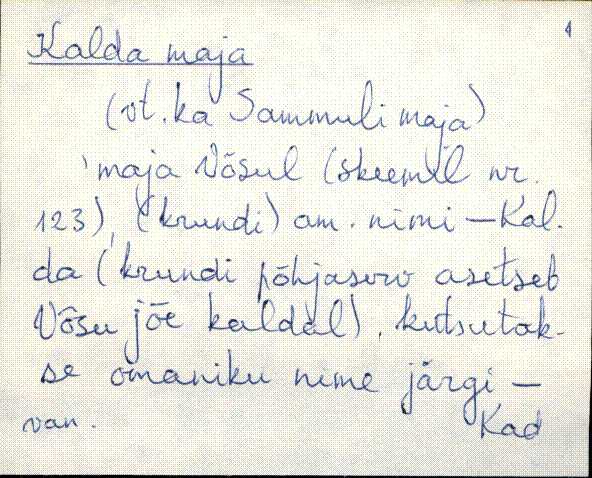 4
Kalda maja
(vt. ka Sammuli maja)
'maja Võsul (skeemil nr.
123), (krundi) am. nimi – Kal-
da (krundi põhjaserv asetseb
Võsu jõe kaldal), kutsutak-
se omaniku nime järgi –
van. Kad